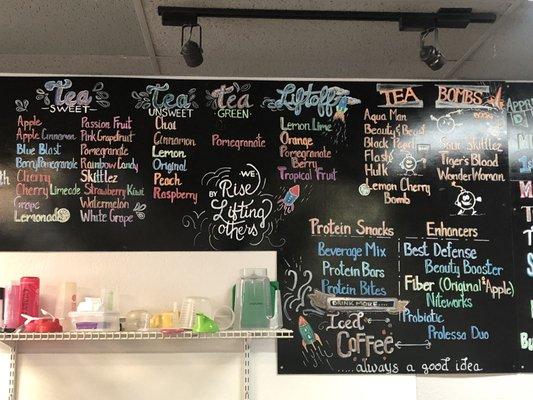 Tea
SWEET
Apple
Apple Cinnamon
Blue Blast
Berry Pomegranate
Cherry
Cherry Limeade
Grape
Lemonade
Passion Fruit
Pink Grapefruit
Pomegranate
Rainbow Candy
Skittlez
Strawberry Kiwi
Watermelon
White Grape
Tea
UNSWEET
Chai
Cinnamon
Lemon
Original
Peach
Raspberry
Tea
GREEN
Pomegranate
WE
Rise
BY
Lifting
others
Liftoff
Lemon Lime
Orange
Pomegranate
Berry
Tropical Fruit
TEA BOMBS
Aqua Man
Beauty & Beast
Black Pearl
Flash
Hulk
Lemon Cherry
Bomb
BOOM
Sour Skittlez
Tiger's Blood
Wonder Woman
Protein Snacks
Beverage Mix
Protein Bars
Protein Bites
DRINK MORE....
Iced
Coffee
....always a good idea
Enhancers
Best Defense
Beauty Booster
Fiber (Original & Apple)
Niteworks
Probiotic
Prolessa Duo